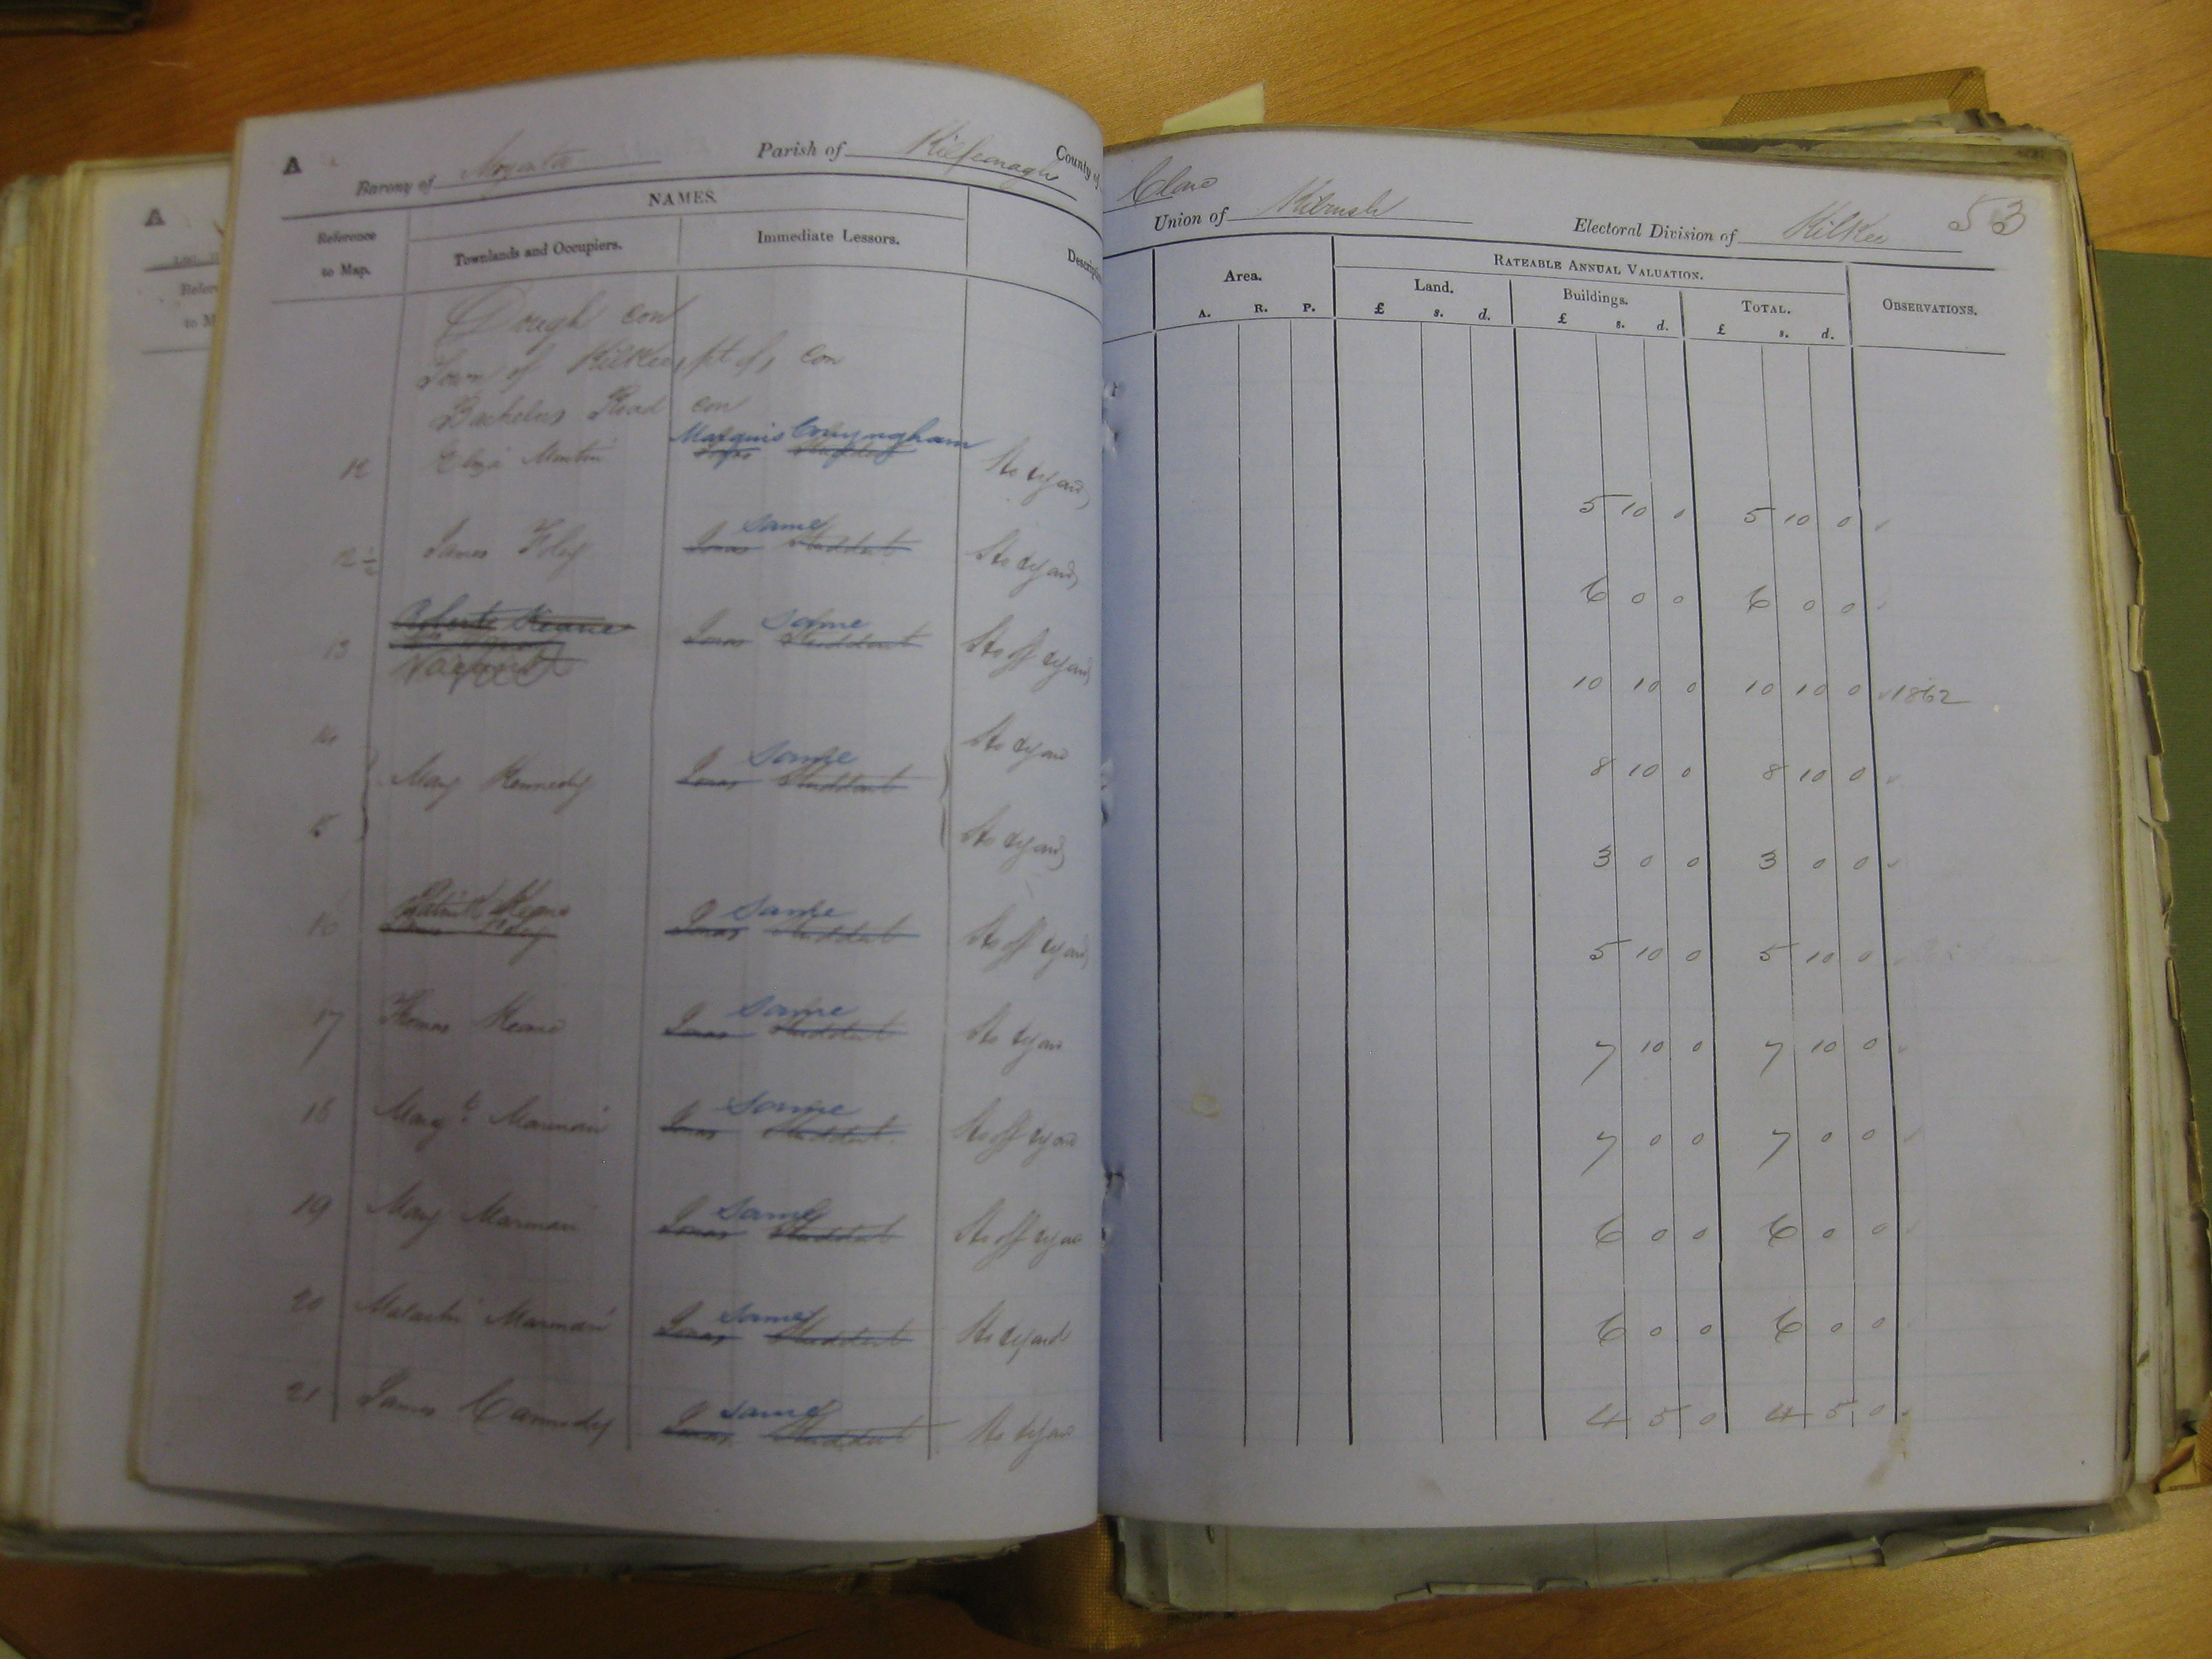 A
A
Barony of Moyarta Parish of Kilfearagh County of Clare
Union of Kilrush Electoral Division of Kilkee 53
Reference to Map.
NAMES.
Townlands and Occupiers.
Immediate Lessors.
Descripti
Area.
A. R. P.
RATEABLE ANNUAL VALUATION.
Land.
£ s. d.
Buildings.
£ s. d.
TOTAL.
£ s. d.
OBSERVATIONS.
Dough con
Town of Kilkee, pt of, con
Bachelors Road con
Marquis Conyngham
12 Eliza Martin Jonas Studdert Ho & yard 5 10 0 5 10 0
same
12 1/2 James Foley Jonas Studdert Ho & yard 6 0 0 6 0 0
Keane same
13 Vacant Jonas Studdert Ho off & yard 10 10 0 10 10 0 1862
14 Ho & yard 8 10 0 8 10 0
same
Mary Kennedy Jonas Studdert
15 Ho & yard 3 0 0 3 0 0
Patrick Keane same
16 Foley Jonas Studdert Ho off & yard 5 10 0 5 10 0
same
17 Thomas Keane Jonas Studdert Ho & yard 7 10 0 7 10 0
same
18 Margt Marrinan Jonas Studdert Ho off & yard 7 0 0 7 0 0
same
19 Mary Marrinan Jonas Studdert Ho off & yard 6 0 0 6 0 0
same
20 Malachi Marrinan Jonas Studdert Ho & yard 6 0 0 6 0 0
same
21 James Cannedy Jonas Studdert Ho & yard 4 5 0 4 5 0